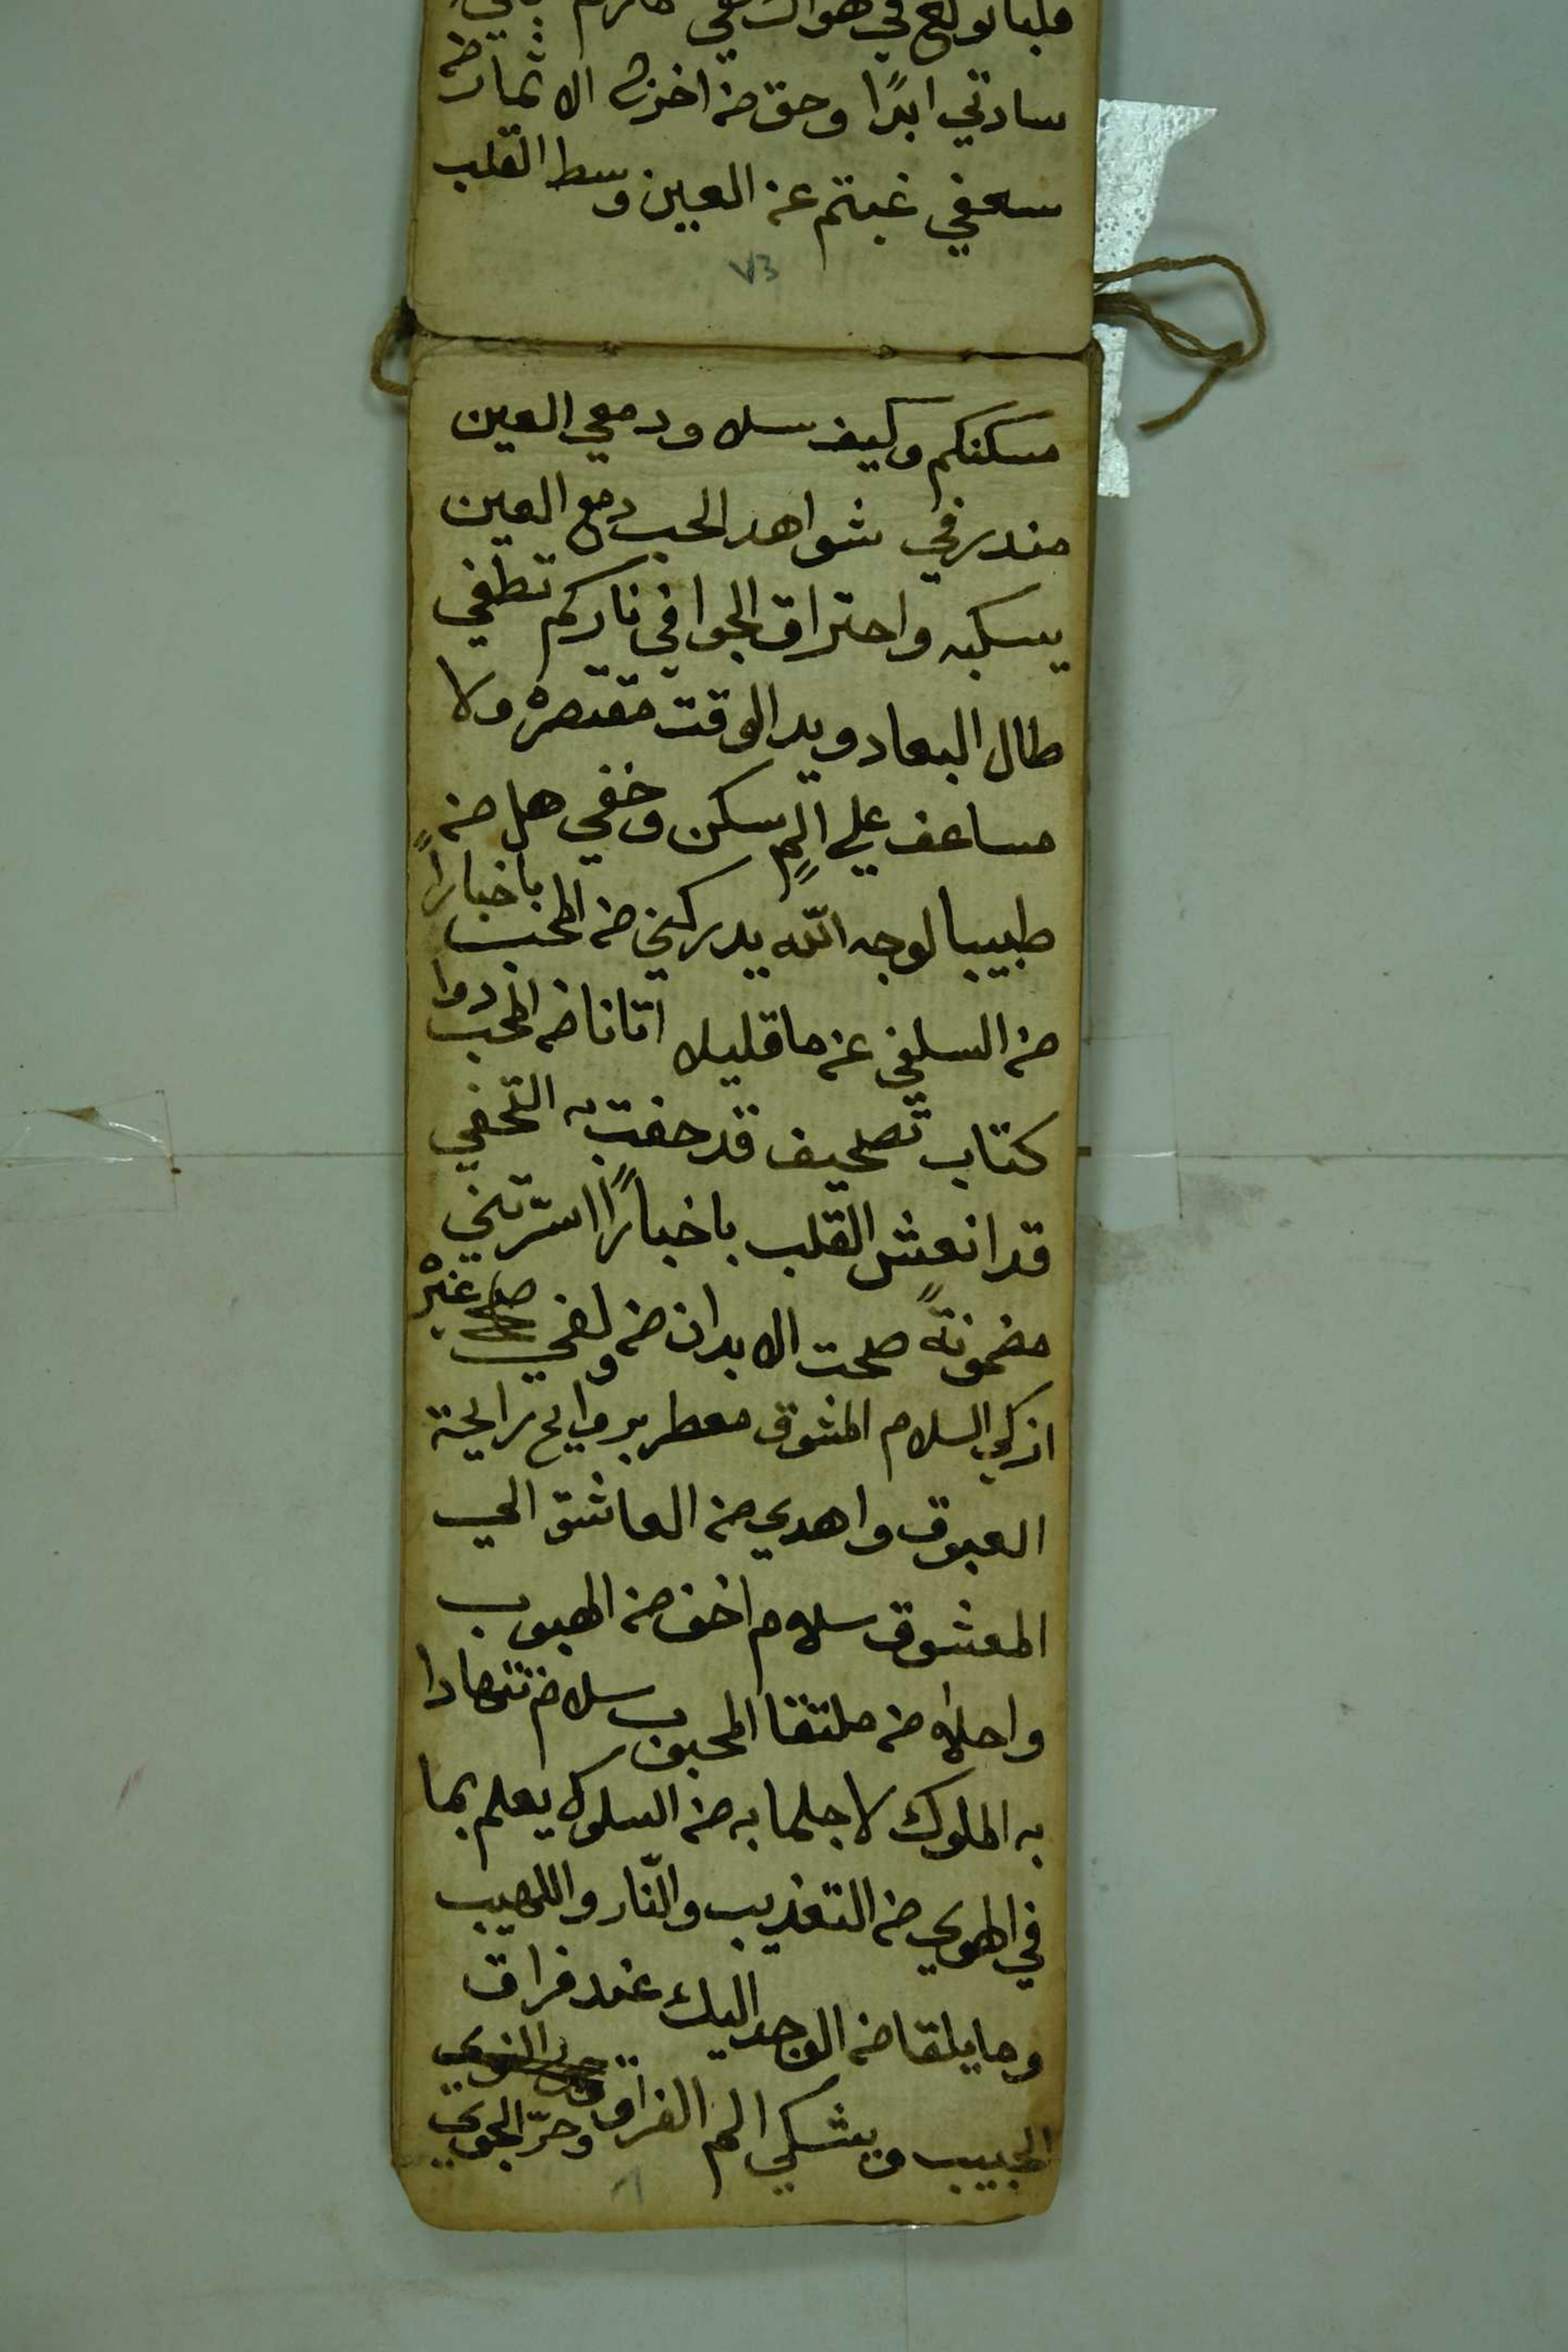 سادتي ابدًا وحق من اخزن الاثمار من
سعفي غبتم عن العين وسط القلب
٧٣
مسكنكم وكيف سلا ودمعي العين
منذرفي شواهد الحب دمع العين
يسكبه واحتراق الجوا في ناركم تطفي
طال البعاد ويد الوقت مقتصرة ولا
مساعف علي المٍ سكن وخفي هل من
طبيبا لوجه الله يدركني من المحب باخبارًا
من السلفي عن ما قليلا اتانا من المحب دوا
كتاب تصحيف قد حفت به التحفي
قد انعش القلب باخبارًا اسرّتني
مضمونةً صحت الابدان من ولفي صلح غيره
ازكي السلام المشوق معطر بروايح رايحة
العبوق واهدي من العاشق الي
المعشوق سلام اخف من الهبوب
واحلا من ملتقا المحبوب سلام تتهادا
به الملوك لاجلما به من السلوك يعلم بما
في الهوي من التعذيب والنّار واللهيب
وما يلقا من الوجد اليك عند فراق
الحبيب ويشكي الم الفراق وحرّ الجوي